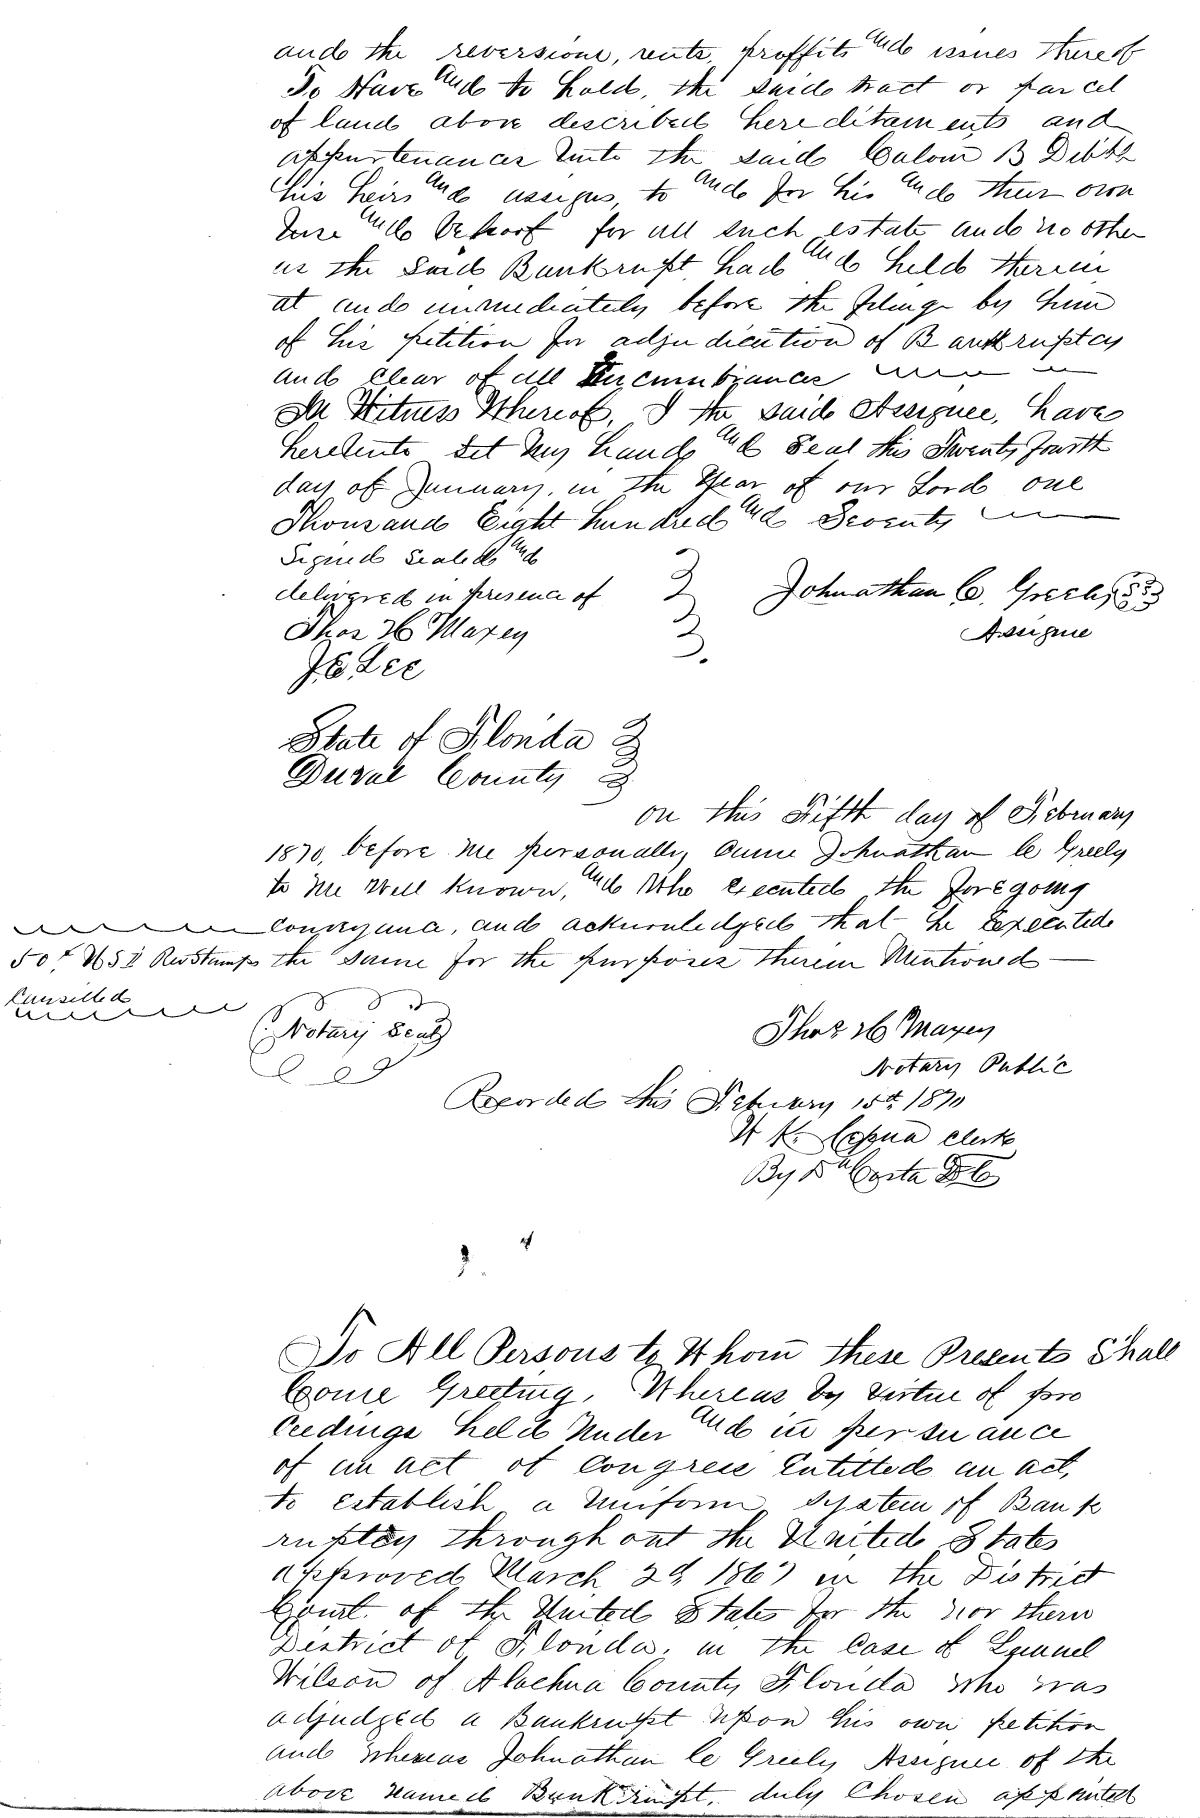 and the reversions, rents, proffits and issues thereof
To Have and to hold, the said tract or parcel
of land above described hereditaments and
appurtenances Unto the said Calvin B Dibble
his heirs and assigns, to and for his and their own
Use and Behoof for all such estate and no other
as the Said Bankrupt had and held therein
at and immediately before the filing by him
of his petition for adjudication of Bankruptcy
and clear of all Incumbrances
In Witness Whereof, I the said Assignee, have
hereUnto Set My hand and Seal this Twenty fourth
day of January, in the Year of our Lord one
Thousand Eight hundred and Seventy
Signed Sealed and
delivered in presence of Johnathan C. Greely
Thos H Maxey Assignee
J.E. Lee
State of Florida
Duval County
on this Fifth day of February
1870, before me personally came Johnathan C Greely
to me Well Known, and Who Executed the foregoing
conveyance, and acknowledged that he Executed
50 cts U S I Rev Stamps the same for the purposes therein Mentioned
Cansilled
Notary Seal
Thos H Maxey
Notary Public
Recorded this February 15th 1870
By Da Costa D C
To All Persons to Whom these Presents Shall
Come Greeting, Whereas by Virtue of pro
ceedings held Under and in persuance
of an act of Congress Entitled an act,
to establish a Uniform System of Bank
ruptcy throughout the United States
approved March 2d, 1867 in the District
Court of the United States for the Northern
District of Florida, in the Case of Lemuel
Wilson of Alachua County Florida who was
adjudged a Bankrupt Upon his own petition
and Whereas Johnathan C Greely Assignee of the
above named Bankrupt, duly Chosen appointed